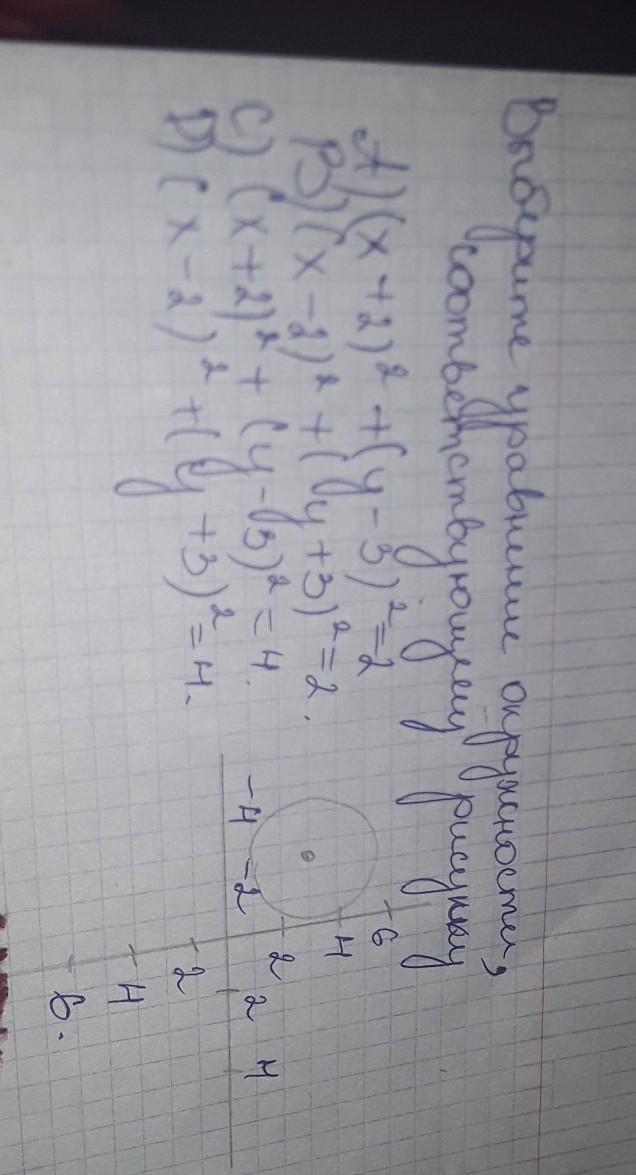 Выберите уравнение окружности,
соответствующему рисунку
A) (x + 2)² + (y - 3)² = 2
B) (x - 2)² + (y + 3)² = 2.
C) (x + 2)² + (y - 3)² = 4.
D) (x - 2)² + (y + 3)² = 4.
6
4
2
-4 -2 2 4
2
4
6.